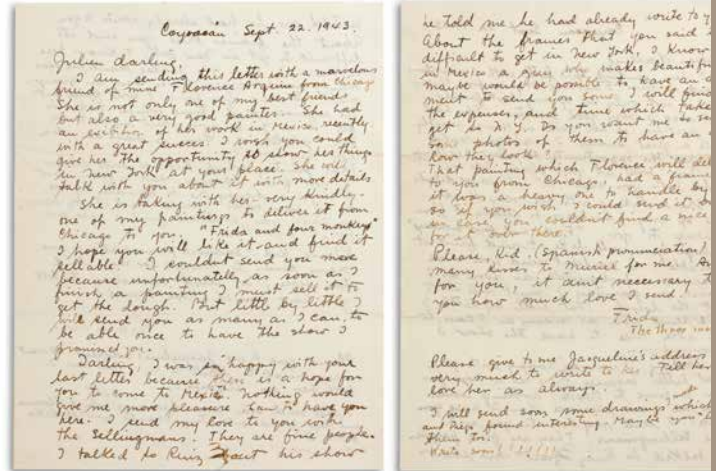 Coyoacán Sept. 22. 1943.
Julien darling,
I am sending this letter with a marvelous
friend of mine Florence Arquin from Chicago
She is not only one of my best friends
but also a very good painter. She had
an exibition of her work in Mexico, recently.
with a great succes. I wish you could
give her the opportunity to show her things
in New York at your place. She will
talk with you about it with more details
She is taking with her very kindly.
one of my paintings to deliver it from
Chicago to you. "Frida and four monkeys"
I hope you will like it and find it
sellable. I couldnt send you more
because unfortunatelly as soon as I
finish a painting I must sell it to
get the dough. But little by little I
will send you as many as I can, to
be able once to have the show I
promised you.
Darling, I was so happy with your
last letter because there is a hope for
you to come to Mexico. Nothing would
give me more pleasure than to have you
here. I send my love to you with
the Sellingmans. They are fine people.
I talked to Ruiz about his show
he told me he had already write to y
About the frames that you said
difficult to get in New York, I know
in Mexico a guy who makes beautif
maybe would be posible to have an a
ment to send you some. I will find
the expenses, and time which take
get to N.Y. Do you want me to se
some photos of them to have an
how they look?
That painting which Florence will del
to you from Chicago, had a frame
it was a heavy one to handle by
so if you wish I could send it
in case you couldn't find a nice
for it over there.
Please, Kid. (Spanish pronunciation)
many kisses to Muriel for me.
for you, it aint necessary t
you how much love I send.
Frida
The three
Please give to me Jacqueline's address
very much to write to her. Tell her
love her as always.
I will send soon some drawings which
and Diego found interesting. Maybe you
them too.
Write soon! !!!!!